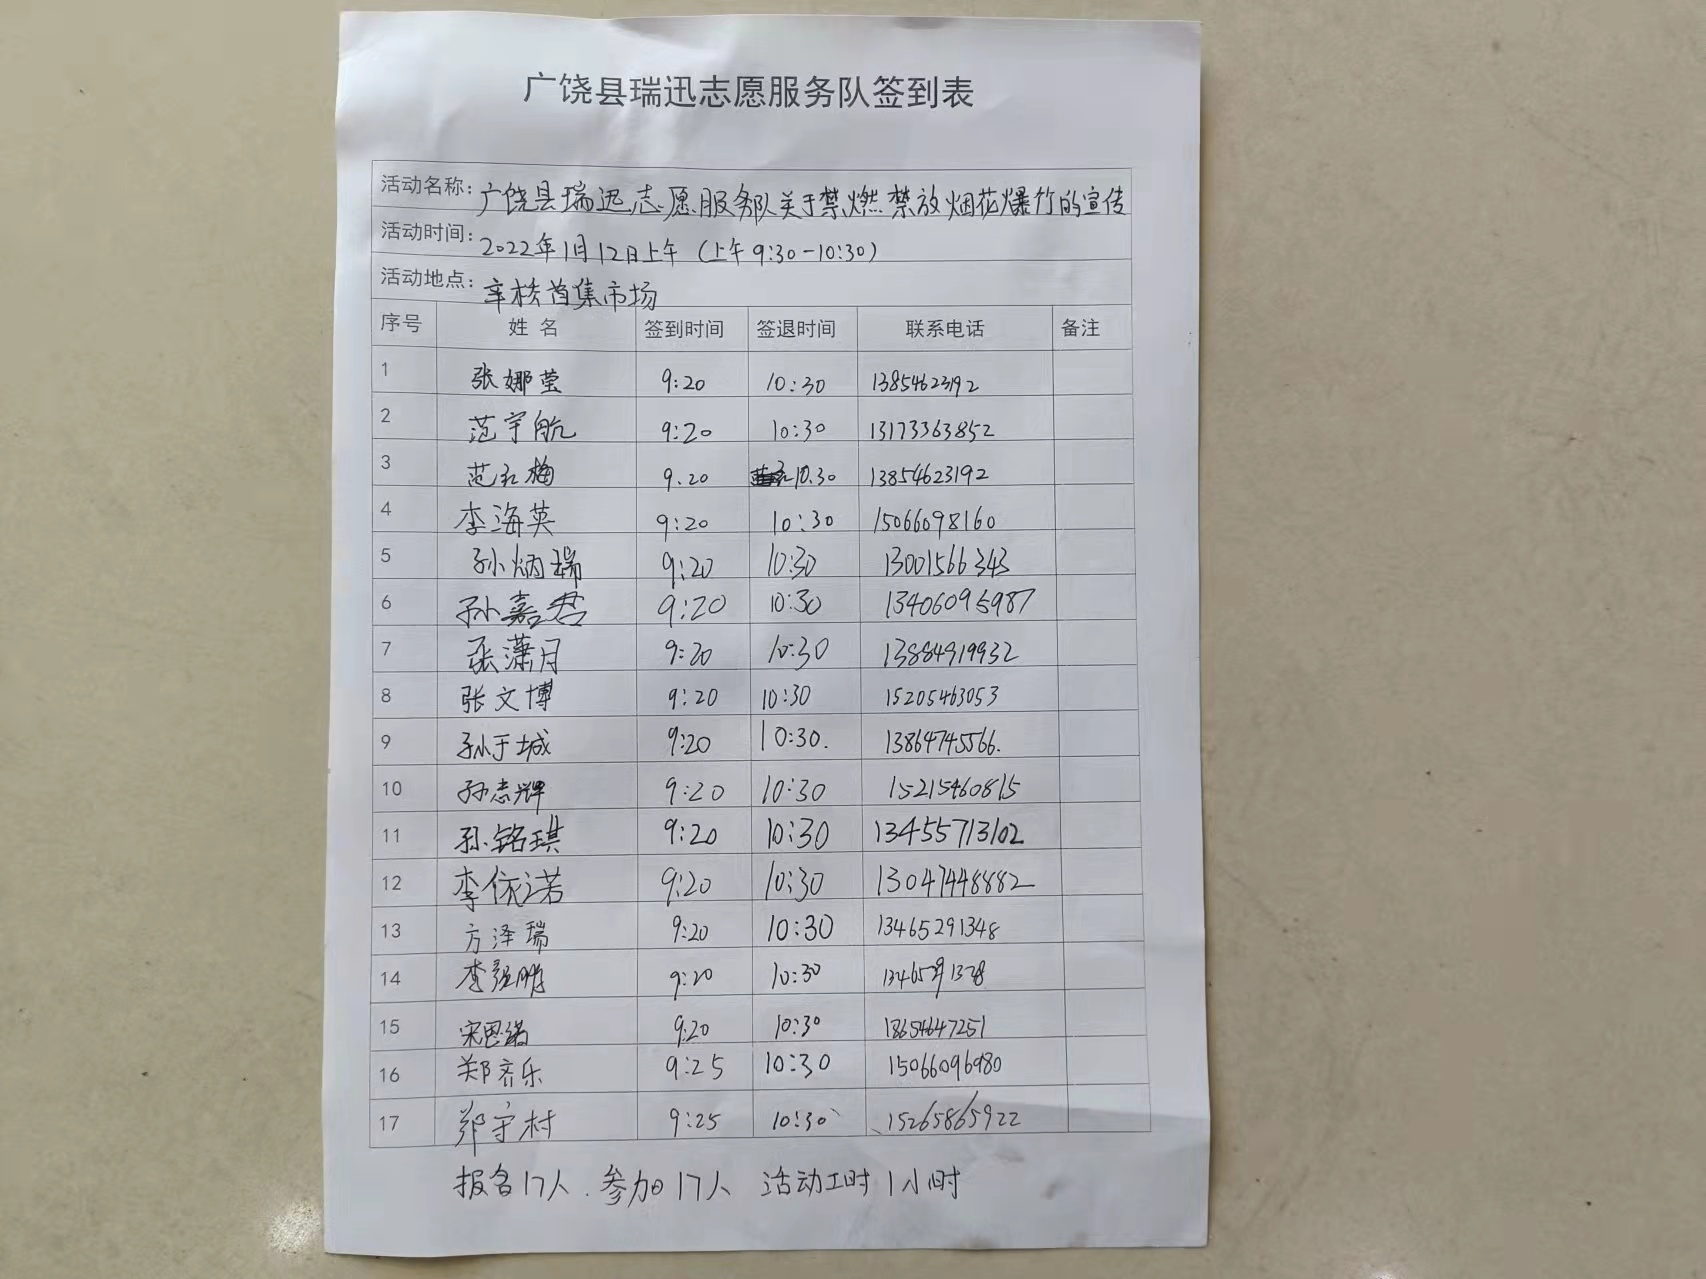 广饶县瑞迅志愿服务队签到表
活动名称: 广饶县瑞迅志愿服务队关于禁燃禁放烟花爆竹的宣传
活动时间: 2022年1月12日上午 (上午9:30-10:30)
活动地点: 集市场
序号 姓名 签到时间 签退时间 联系电话 备注
1 张娜莹 9:20 10:30 13854623192
2 范宇航 9:20 10:30 13173363852
3 范 梅 9.20 10.30 13854623192
4 李海英 9:20 10:30 15066098160
5 孙炳瑞 9:20 10:30 13001566343
6 孙嘉君 9:20 10:30 13406095987
7 张潇月 9:20 10:30 13884919932
8 张文博 9:20 10:30 15205463053
9 孙于城 9:20 10:30. 13864745566.
10 孙志辉 9:20 10:30 15215460815
11 孙铭琪 9:20 10:30 13455713102
12 李依诺 9:20 10:30 13047448882
13 方泽瑞 9:20 10:30 13465291348
14 李 鹏 9:20 10:30
15 宋思 9:20 10:30 18654647251
16 郑齐乐 9:25 10:30 15066096980
17 郑宇村 9:25 10:30 15265865922
报名17人.参加17人 活动工时1小时